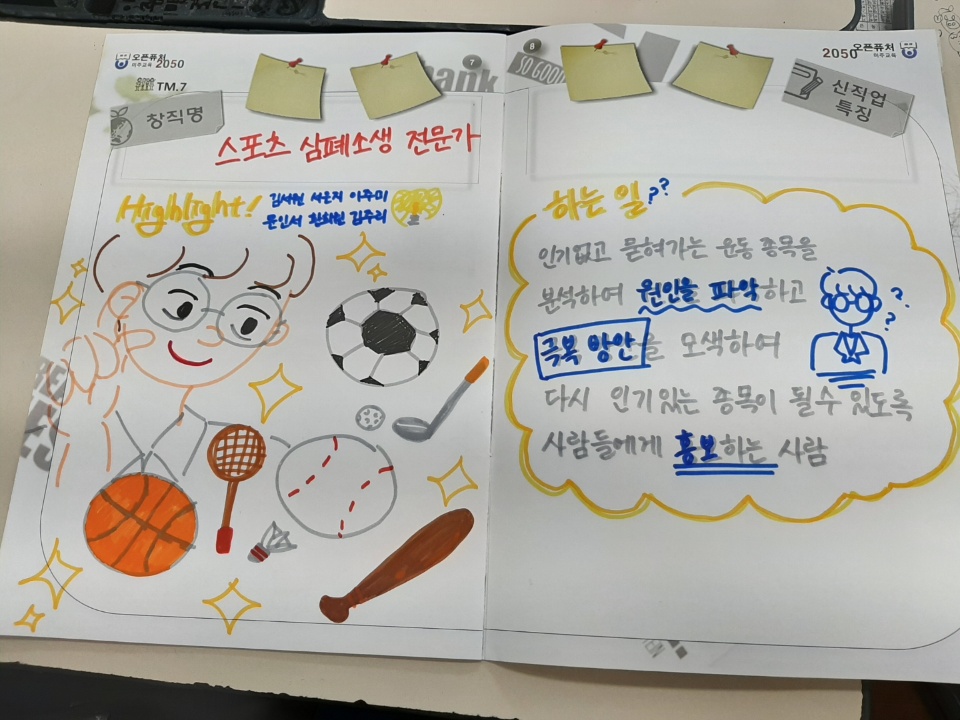 오픈퓨처
미주교육 2050
TM.7
창직명
7
ank
스포츠 심폐소생 전문가
Highlight!
8
SO GOOD
2050 오픈퓨처
미주교육
신직업
특징
하는 일??
인기없고 묻혀가는 운동 종목을
분석하여 원인을 파악하고
극복 방안을 모색하여
다시 인기있는 종목이 될수 있도록
사람들에게 홍보하는 사람
??